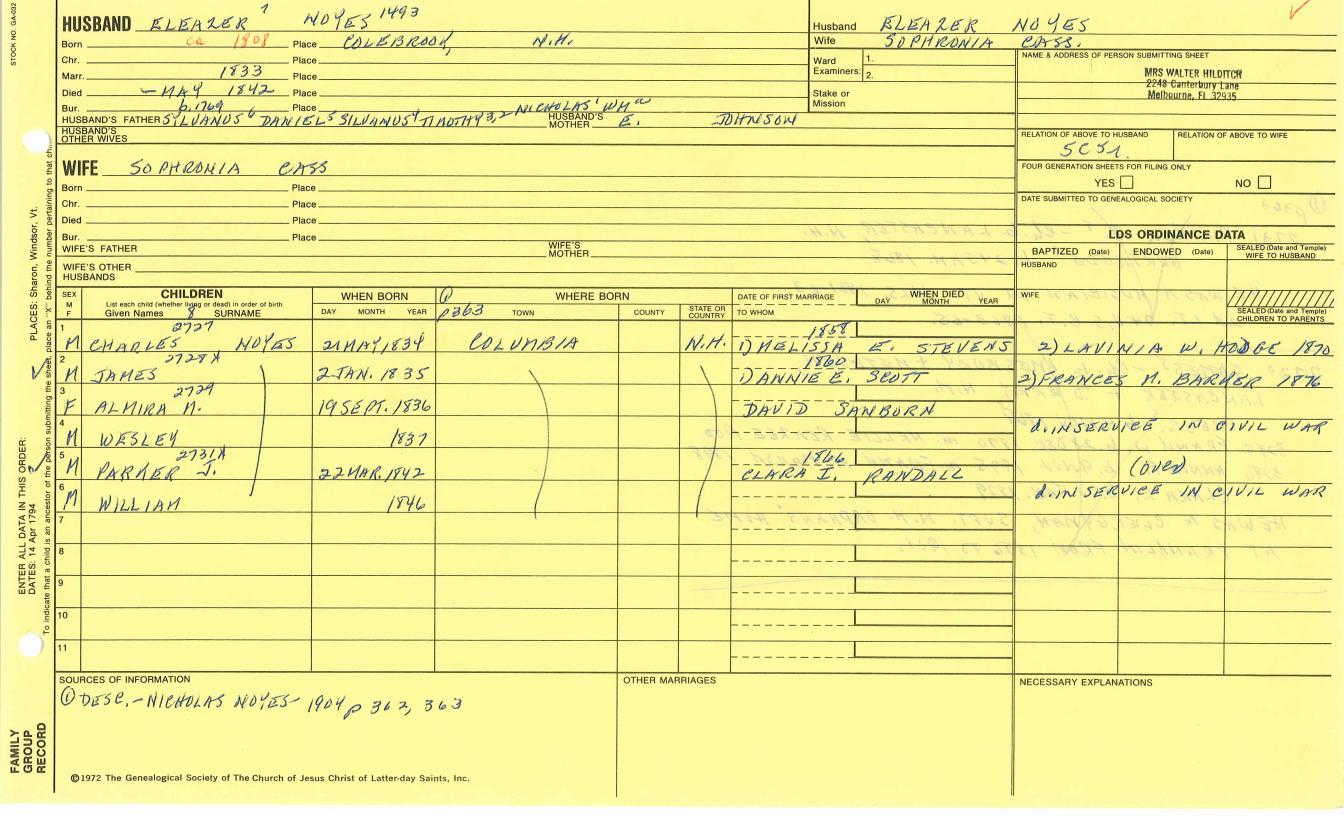 STOCK NO. GA-032
HUSBAND ELEAZER 7 NOYES 1493
Born ca 1808 Place COLEBROOK, N.H.
Chr. Place
Marr. 1833 Place
Died - MAY 1842 Place
Bur. Place
b.1769 NICHOLAS' WM
HUSBAND'S FATHER SILVANUS 6 DANIEL 5 SILVANUS 4 TIMOTHY 3,2 HUSBAND'S MOTHER E. JOHNSON
HUSBAND'S OTHER WIVES
WIFE SOPHRONIA CASS
Born Place
Chr. Place
Died Place
Bur. Place
WIFE'S FATHER WIFE'S MOTHER
WIFE'S OTHER HUSBANDS
Husband ELEAZER NOYES
Wife SOPHRONIA CASS.
Ward Examiners: 1.
2.
Stake or Mission
NAME & ADDRESS OF PERSON SUBMITTING SHEET
MRS WALTER HILDITCH
2248 Canterbury Lane
Melbourne, Fl 32935
RELATION OF ABOVE TO HUSBAND RELATION OF ABOVE TO WIFE
FOUR GENERATION SHEETS FOR FILING ONLY
YES NO
DATE SUBMITTED TO GENEALOGICAL SOCIETY
LDS ORDINANCE DATA
BAPTIZED (Date) ENDOWED (Date) SEALED (Date and Temple) WIFE TO HUSBAND
HUSBAND
WIFE
SEALED (Date and Temple) CHILDREN TO PARENTS
SEX M F
CHILDREN
List each child (whether living or dead) in order of birth
Given Names 8 SURNAME
WHEN BORN
DAY MONTH YEAR
① p363
WHERE BORN
TOWN COUNTY STATE OR COUNTRY
DATE OF FIRST MARRIAGE
TO WHOM
WHEN DIED
DAY MONTH YEAR
2727 1858
1 M CHARLES NOYES 21 MAY 1834 COLUMBIA N.H. 1) MELISSA E. STEVENS 2) LAVINIA W. HODGE 1870
2728X 1860
2 M JAMES 2 JAN. 1835 1) ANNIE E. SCOTT 2) FRANCES M. BARKER 1876
2729
3 F ALMIRA M. 19 SEPT. 1836 DAVID SANBORN
4 M WESLEY 1837 d. IN SERVICE IN CIVIL WAR
2731X 1866
5 M PARKER J. 22 MAR. 1842 CLARA I. RANDALL (over)
6 M WILLIAM 1846 d. IN SERVICE IN CIVIL WAR
7
8
9
10
11
SOURCES OF INFORMATION
① DESC. - NICHOLAS NOYES 1904 p 362, 363
OTHER MARRIAGES
NECESSARY EXPLANATIONS
©1972 The Genealogical Society of The Church of Jesus Christ of Latter-day Saints, Inc.
FAMILY GROUP RECORD
ENTER ALL DATA IN THIS ORDER:
DATES: 14 Apr 1794
PLACES: Sharon, Windsor, Vt.
To indicate that a child is an ancestor of the person submitting the sheet, place an "X" behind the number pertaining to that ch